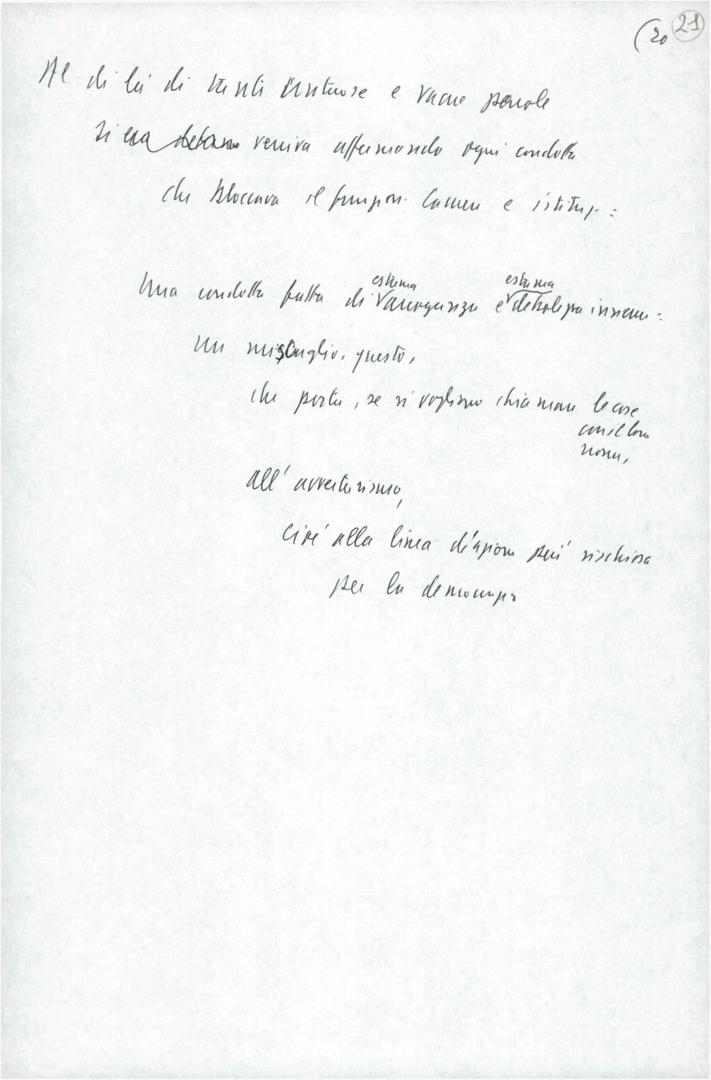 (20 21
Al di là di tanti fatuose e vacue parole
si era veniva affermando ogni condotta
che bloccava il funzion. Camere e istituz.:
Una condotta fatta di estrema arroganza e estrema debolezza insieme:
un miscuglio, questo,
che porta, se si vogliono chiamare le cose
con il loro
nome,
all'avventurismo,
cioè alla linea d'azione più rischiosa
per la democrazia